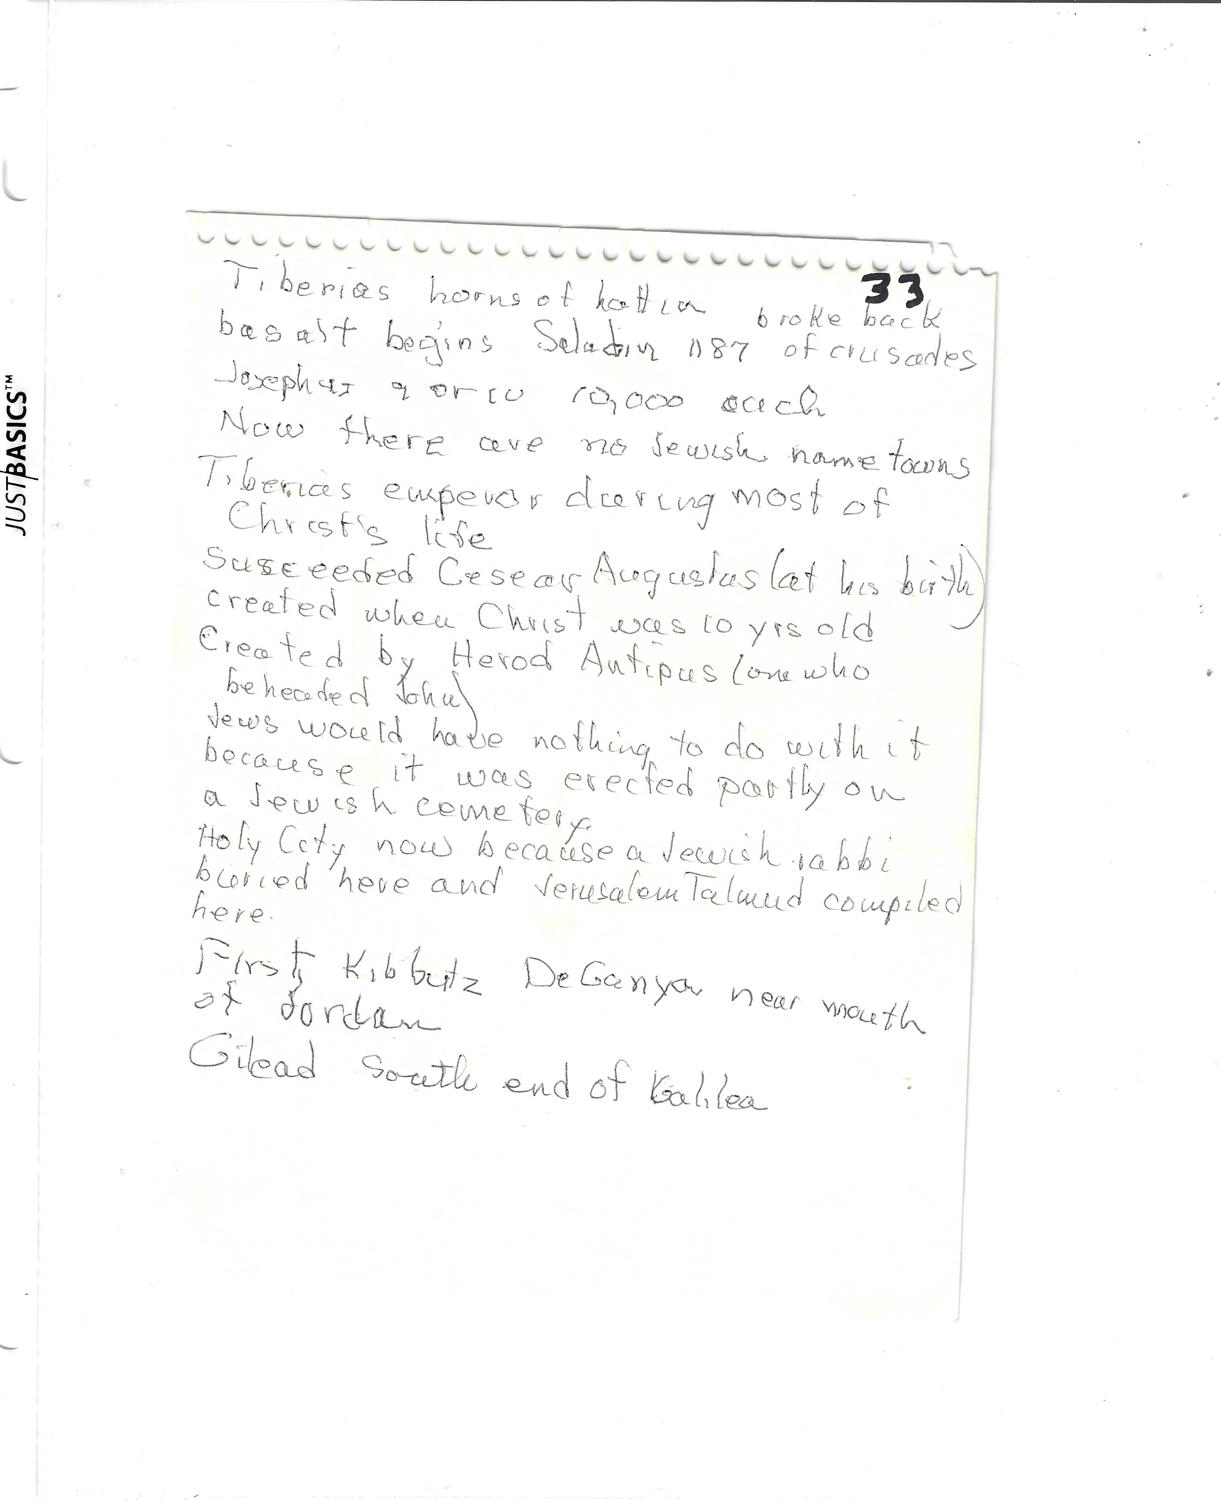 JUSTBASICS™
33
Tiberias horns of hattin broke back
basalt begins Saladin 1187 of crusades
Josephus 9 or 10 10,000 each
Now there are no Jewish name towns
Tiberias emperor during most of
Christ's life
Susceeded Cesear Augustus (at his birth)
created when Christ was 10 yrs old
Created by Herod Antipus (one who
beheaded John)
Jews would have nothing to do with it
because it was erected partly on
a Jewish cemetery.
Holy City now because a Jewish rabbi
buried here and Jerusalem Talmud compiled
here.
First Kibbutz DeGanya near mouth
of Jordan
Gilead South end of Galilea